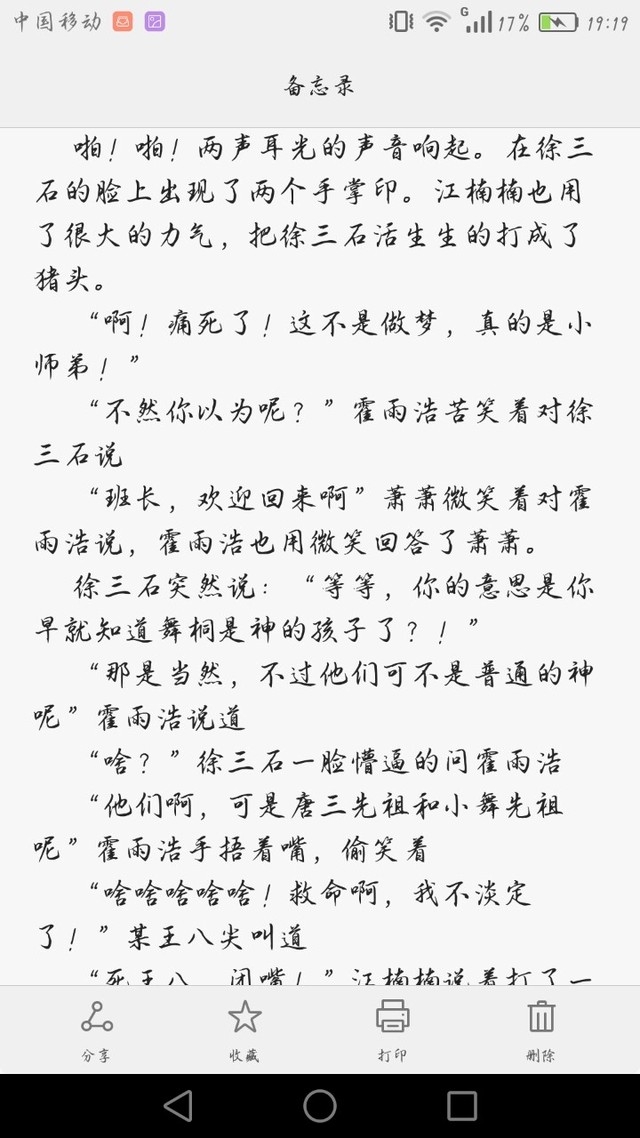 中国移动
G
17%
19:19
备忘录
啪！啪！两声耳光的声音响起。在徐三
石的脸上出现了两个手掌印。江楠楠也用
了很大的力气，把徐三石活生生的打成了
猪头。
“啊！痛死了！这不是做梦，真的是小
师弟！”
“不然你以为呢？”霍雨浩苦笑着对徐
三石说
“班长，欢迎回来啊”萧萧微笑着对霍
雨浩说，霍雨浩也用微笑回答了萧萧。
徐三石突然说：“等等，你的意思是你
早就知道舞桐是神的孩子了？！”
“那是当然，不过他们可不是普通的神
呢”霍雨浩说道
“啥？”徐三石一脸懵逼的问霍雨浩
“他们啊，可是唐三先祖和小舞先祖
呢”霍雨浩手捂着嘴，偷笑着
“啥啥啥啥啥！救命啊，我不淡定
了！”某王八尖叫道
“死王八，闭嘴！”江楠楠说着打了一
分享
收藏
打印
删除